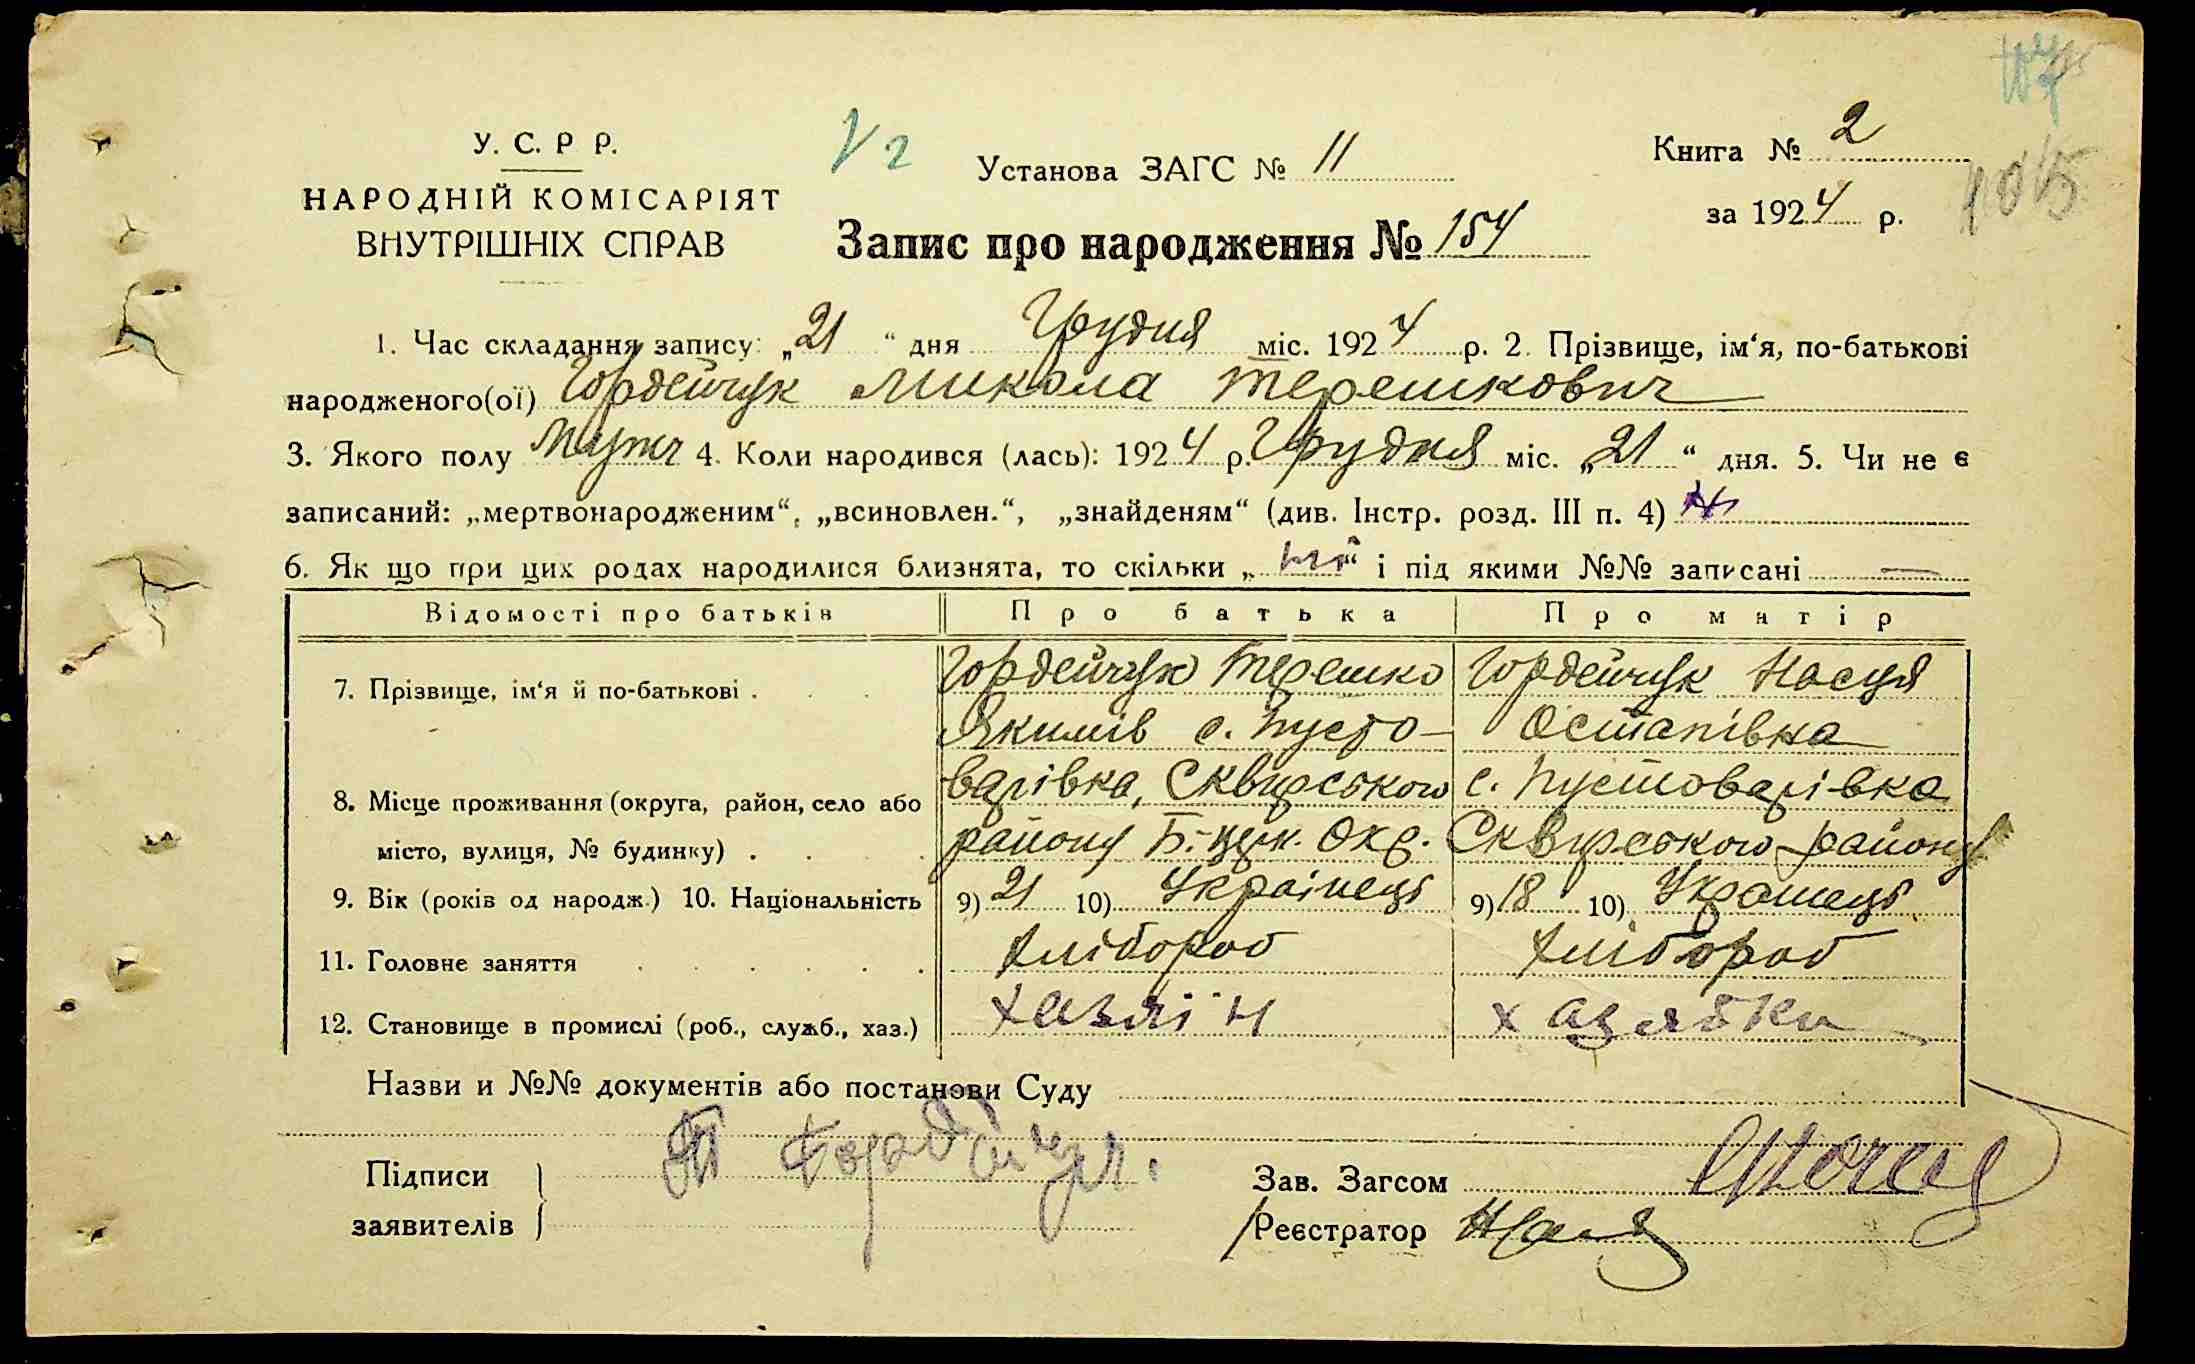 У. С. Р Р.
НАРОДНІЙ КОМІСАРІЯТ
ВНУТРІШНІХ СПРАВ
Установа ЗАГС № 11
Запис про народження № 154
Книга № 2
за 1924 р.
1. Час складання запису: „21“ дня Грудня міс. 1924 р. 2. Прізвище, ім‘я, по-батькові
народженого(ої) Гордейчук Микола Терешкович
3. Якого полу Мужч 4. Коли народився (лась): 1924 р. Грудня міс. „21“ дня. 5. Чи не є
записаний: „мертвонародженим“, „всиновлен.“, „знайденям“ (див. Інстр. розд. III п. 4)
6. Як що при цих родах народилися близнята, то скільки „ні“ і під якими №№ записані —
Відомості про батьків Про батька Про матір
7. Прізвище, ім‘я й по-батькові . Гордейчук Терешко Гордейчук Насця
Якимів с. Пусто- Остапівна
8. Місце проживання (округа, район, село або варівка, Сквирського с. Пустоварівка
місто, вулиця, № будинку) . район Б.-Церк. Окр. Сквирського району
9. Вік (років од народж.) 10. Національність 9) 21 10) Українець 9) 18 10) Українець
11. Головне заняття хлібороб хлібороб
12. Становище в промислі (роб., служб., хаз.) хазяїн хазяйка
Назви и №№ документів або постанови Суду
Підписи
заявителів
Зав. Загсом
Реєстратор